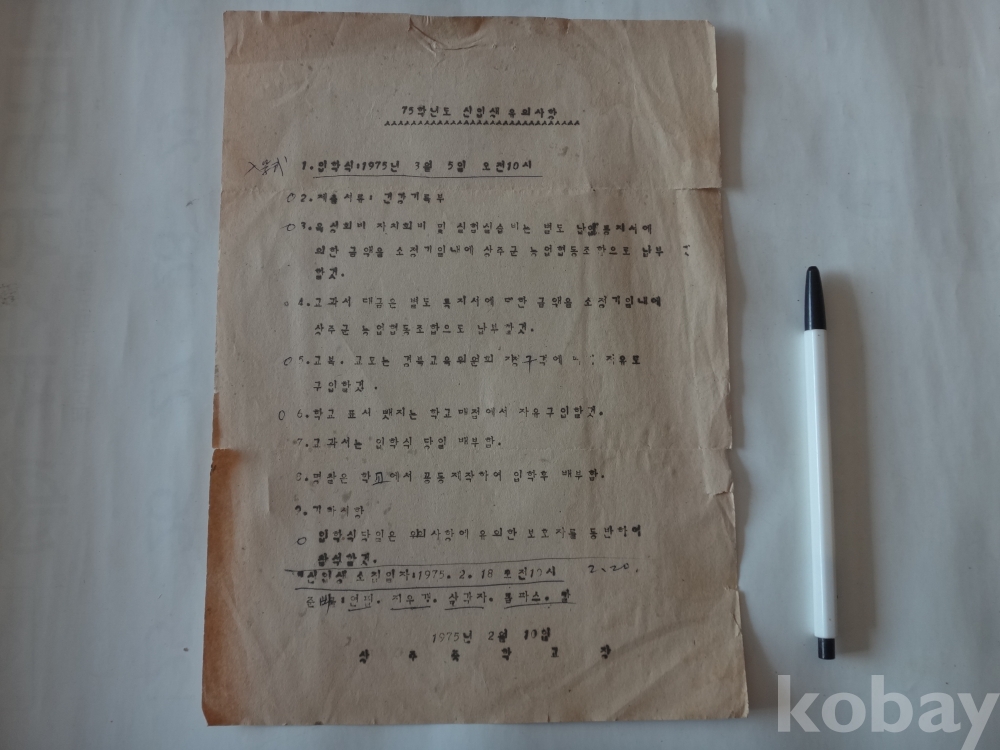 75학년도 신입생 유의사항
入学式 1. 입학식:1975년 3월 5일 오전10시
2. 제출서류: 건강기록부
3. 육성회비 자치회비 및 실험실습비는 별도 통지서에
의한 금액을 소정기일내에 상주군 농업협동조합으로 납부
할것.
4. 교과서 대금은 별도 통지서에 의한 금액을 소정기일내에
상주군 농업협동조합으로 납부할것.
5. 교복. 교모는 경북교육위원회 규격에 자유로
구입할것.
6. 학교 표시 뺏지는 학교매점에서 자유구입할것.
7. 교과서는 입학식 당일 배부함.
8. 명찰은 학교에서 공동제작하여 입학후 배부함.
9. 기타사항
입학식당일은 위의사항에 유의한 보호자를 동반하여
참석할것.
신입생 소집일자:1975. 2. 18 오전10시 2、20.
준비: 연필. 지우개. 삼각자. 콤파스.
1975년 2월 10일
상 주 중 학 교 장
kobay